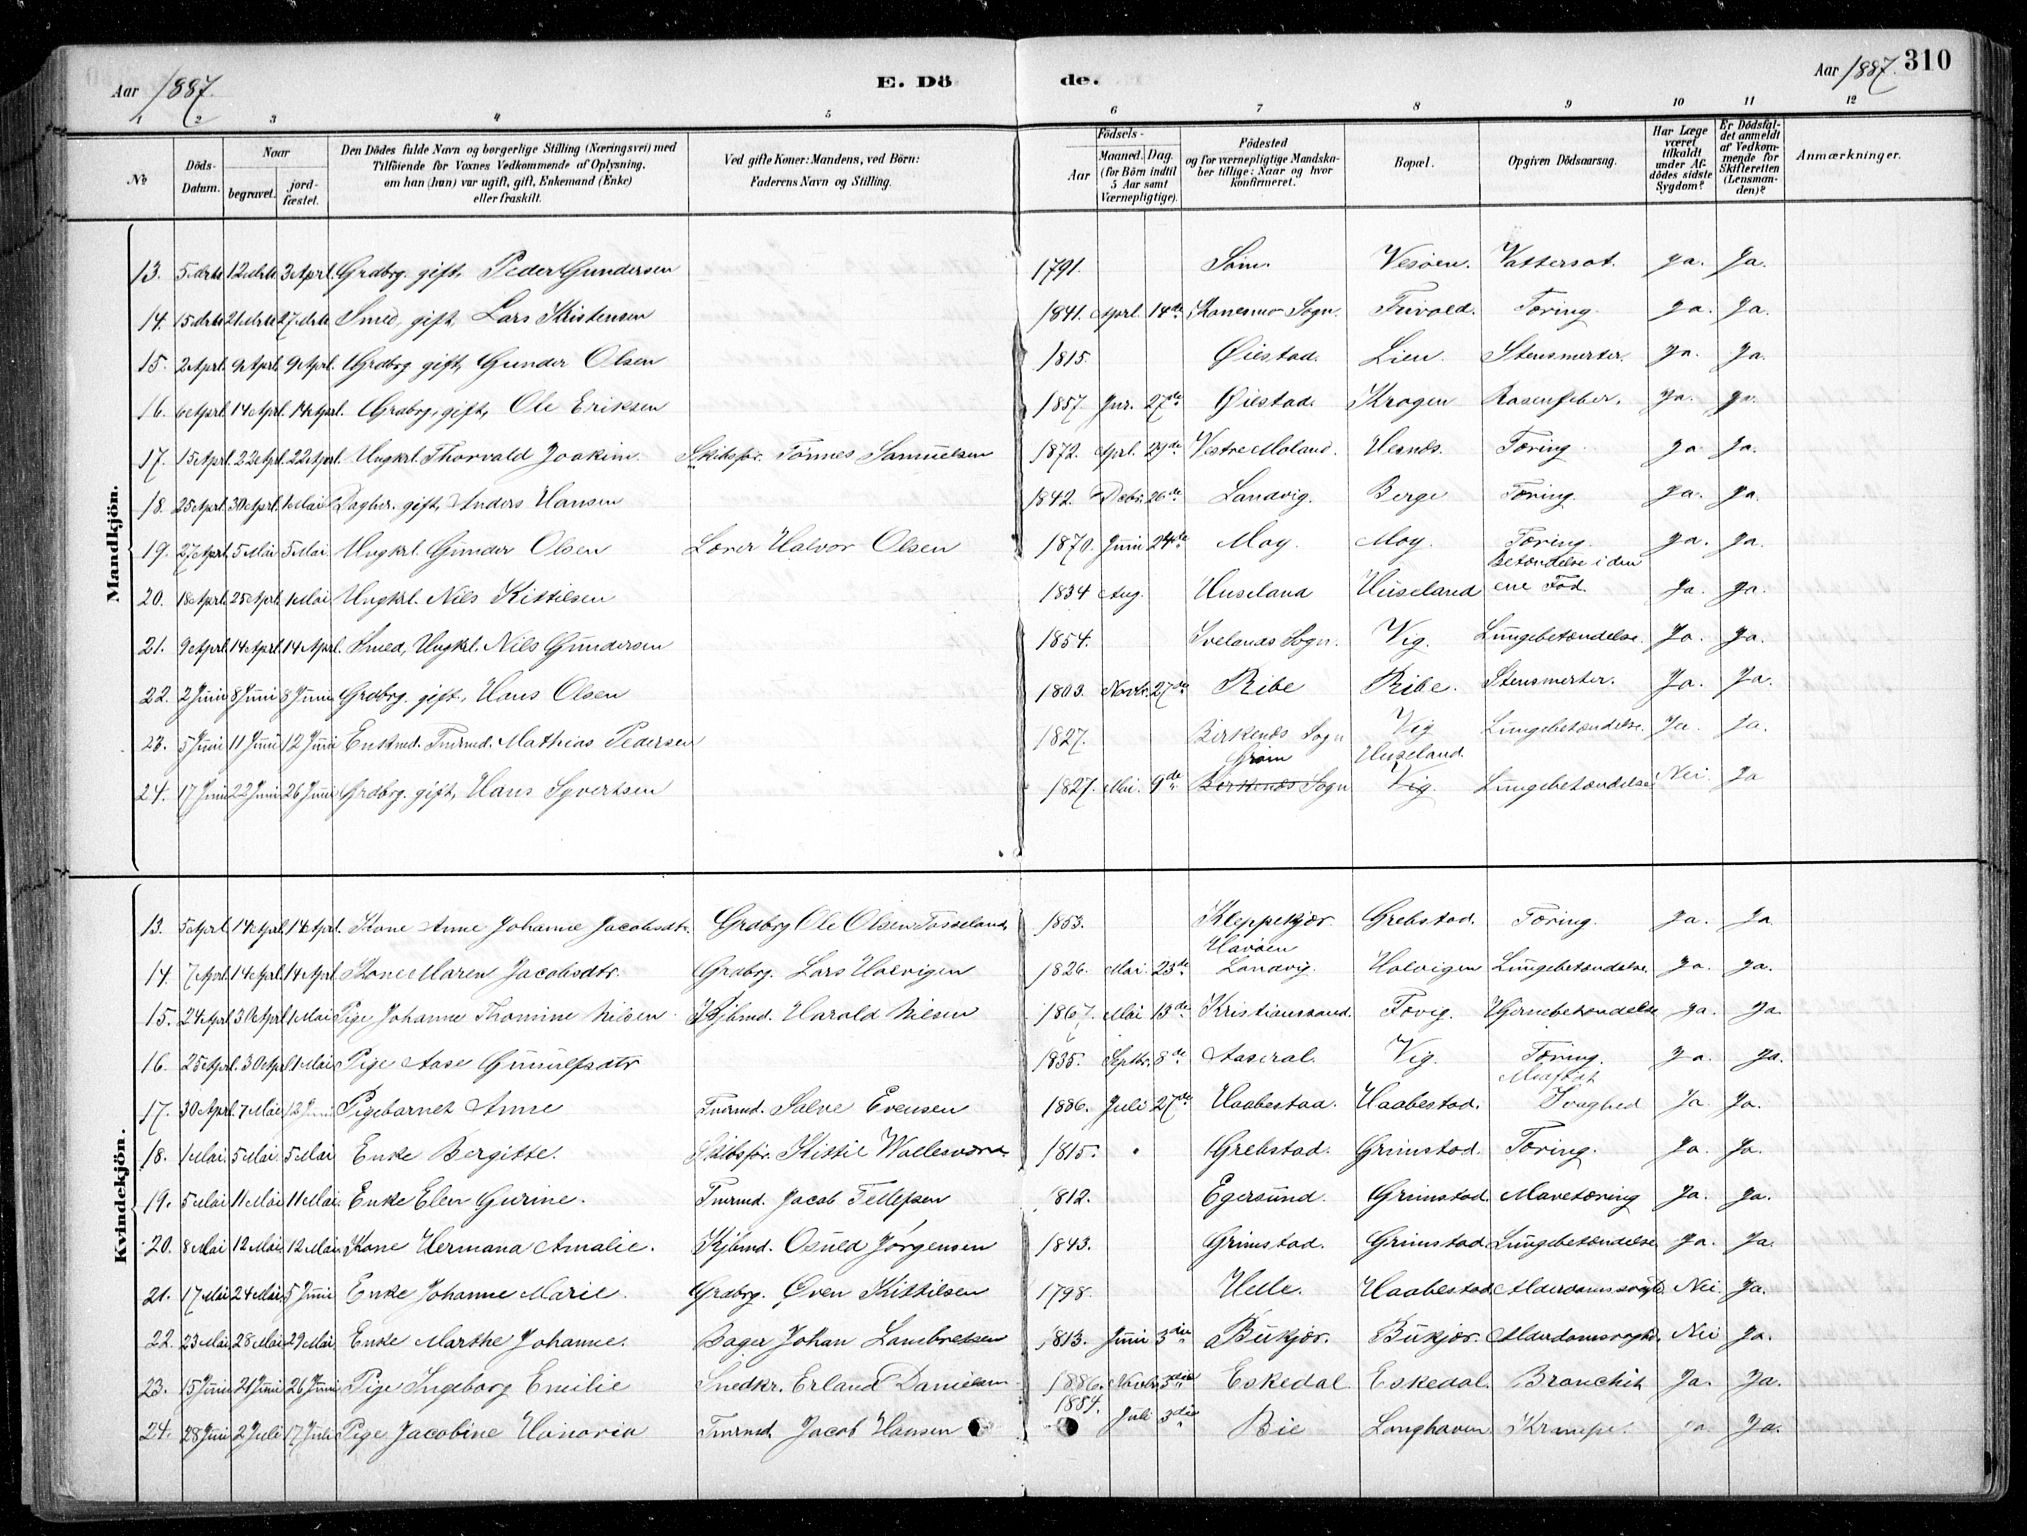 Aar 1887.
E. Döde.
Aar 1887. 310
1 2 3 4 5 6 7 8 9 10 11 12
No
Döds-Datum.
Naar
begravet.
jord-fæstet.
Den Dödes fulde Navn og borgerlige Stilling (Næringsvei) med
Tilföiende for Voxnes Vedkommende af Oplysning.
om han (hun) var ugift, gift, Enkemand (Enke)
eller fraskilt.
Ved gifte Koner: Mandens, ved Börn:
Faderens Navn og Stilling.
Födsels-
Aar
Maaned. Dag.
(for Börn indtil
5 Aar samt
Værnepligtige).
Födested
og for værnepligtige Mandska-
ber tillige: Naar og hvor
konfirmeret.
Bopæl.
Opgiven Dödsaarsag.
Har Læge
været
tilkaldt
under Af-
dödes sidste
Sygdom?
Er Dödsfal-
det anmeldt
af Vedkom-
mende for
Skifteretten
(Lensman-
den)?
Anmærkninger.
Mandkjön.
13. 5 Mrts 12 Mrts 3 Aprl. Grdbrg. gift, Peder Gundersen 1791. Søm. Vesøen. Vattersot. Ja. Ja.
14. 15 Mrts 21 Mrts 27 Mrts Smed, gift, Lars Kristensen 1841. Aprl. 14de Konesmo Sogn. Frivold. Tæring. Ja. Ja.
15. 2 Aprl. 9 Aprl. 9 Aprl. Grdbrg. gift, Gunder Olsen 1815. Øiestad. Lien. Stensmerter. Ja. Ja.
16. 6 Aprl. 14 Aprl. 14 Aprl. Grdbrg, gift, Ole Eriksen 1857. Jnr. 27de Øiestad. Krogen Rosenfeber. Ja. Ja.
17. 15 Aprl. 22 Aprl. 22 Aprl. Ungkrl. Thorvald Joakim. Skibsfør. Tønnes Samuelsen 1872. Aprl. 29de Vestre Moland. Hesnes. Tæring. Ja. Ja.
18. 25 Aprl. 30 Aprl. 1 Mai Dagbr. gift, Anders Hansen 1842. Debr. 26de Landvig. Berge Tæring. Ja. Ja.
19. 27 Aprl. 5 Mai 5 Mai Ungkrl. Gunder Olsen Lærer Halvor Olsen 1870. Juni 24de Moy. Moy. Tæring. Ja. Ja.
20. 18 Aprl. 25 Aprl. 1 Mai Ungkrl. Nils Kittilsen 1834 Aug. Huseland Huseland Betændelse i den ene Fod. Ja. Ja.
21. 9 Aprl. 14 Aprl. 14 Aprl. Smed, Ungkrl. Nils Gundersen 1854. Ivelands Sogn. Vig. Lungebetændelse. Ja. Ja.
22. 2 Juni 8 Juni 8 Juni Grdbrg. gift, Hans Olsen 1803. Novbr. 27de Ribe Ribe. Stensmerter. Ja. Ja.
23. 5 Juni 11 Juni 12 Juni Enkmd. Tmrmd. Mathias Pedersen 1827. Birkenæs Sogn Vig Lungebetændelse. Ja. Ja.
Grøm Huseland.
24. 17 Juni 22 Juni 26 Juni Grdbrg. gift, Hans Syvertsen 1827. Mai. 9de Birkenæs Sogn Vig. Lungebetændelse Nei. Ja
Kvindekjön.
13. 5 Aprl. 14 Aprl. 14 Aprl. Kone Anne Johanne Jacobsdtr. Grdbrg Ole Olsen Tosseland 1853. Kleppekjær. Grebstad. Tæring. Ja. Ja
14. 7 Aprl. 14 Aprl. 14 Aprl Kone Maren Jacobsdtr. Grdbrg. Lars Holvigen 1826. Mai. 23de Havøen Landvig. Holvigen Lungebetændelse. Ja. Ja.
15. 24 Aprl. 30 Aprl. 1 Mai Pige Johanne Thomine Nilsen Kjbmd. Harold Nilsen 1867. Mai 13de Kristianssand. Fevig. Hjernebetændelse Ja. Ja.
16. 25 Aprl. 30 Aprl. 1 Mai Pige Aase Gunulfsdtr 1835. Septbr. 8de Aaseral. Vig. Tæring. Ja. Ja.
17. 30 Aprl. 7 Mai 12 Juni Pigebarnet Anne Tmrmd. Salve Evensen 1886. Juli 27de Haabestad. Haabestad. Medfødt Svaghed Ja. Ja.
18. 1 Mai. 5 Mai. 5 Mai Enke Bergitte. Skibsfør. Kittil Vallesværd. 1815. Grebstad. Grimstad. Tæring. Ja. Ja.
19. 5 Mai 11 Mai 11 Mai. Enke Elen Gurine. Tmrmd. Jacob Tellefsen 1812. Egersund. Grimstad. Mavetæring Ja. Ja.
20. 8 Mai 12 Mai 12 Mai Kone Hermana Amalie. Kjbmd. Osuld Jørgensen 1843. Grimstad. Grimstad. Lungebetændelse. Ja. Ja.
21. 17 Mai 24 Mai 5 Juni Enke Johanne Marie. Grdbrg. Øven Kittilsen 1798. Helle. Haabestad Alderdomssvagh. Nei. Ja.
22. 23 Mai 28 Mai 29 Mai. Enke Marthe Johanne. Bager Johan Lambretsen 1813. Juni 3die Bukjær. Bukjær. Alderdomsvagh. Nei Ja.
23. 15 Juni 21 Juni 26 Juni Pige Ingeborg Emilie Snedkr. Erland Danielsen 1886. Novbr. 3die Eskedal. Eskedal. Bronchit Ja. Ja.
24. 28 Juni 2 Juli 17 Juli Pige Jacobine Honoria Tmrmd. Jacob Hansen 1854. Juli 3die Bie Longhaven Krampe. Ja Ja.